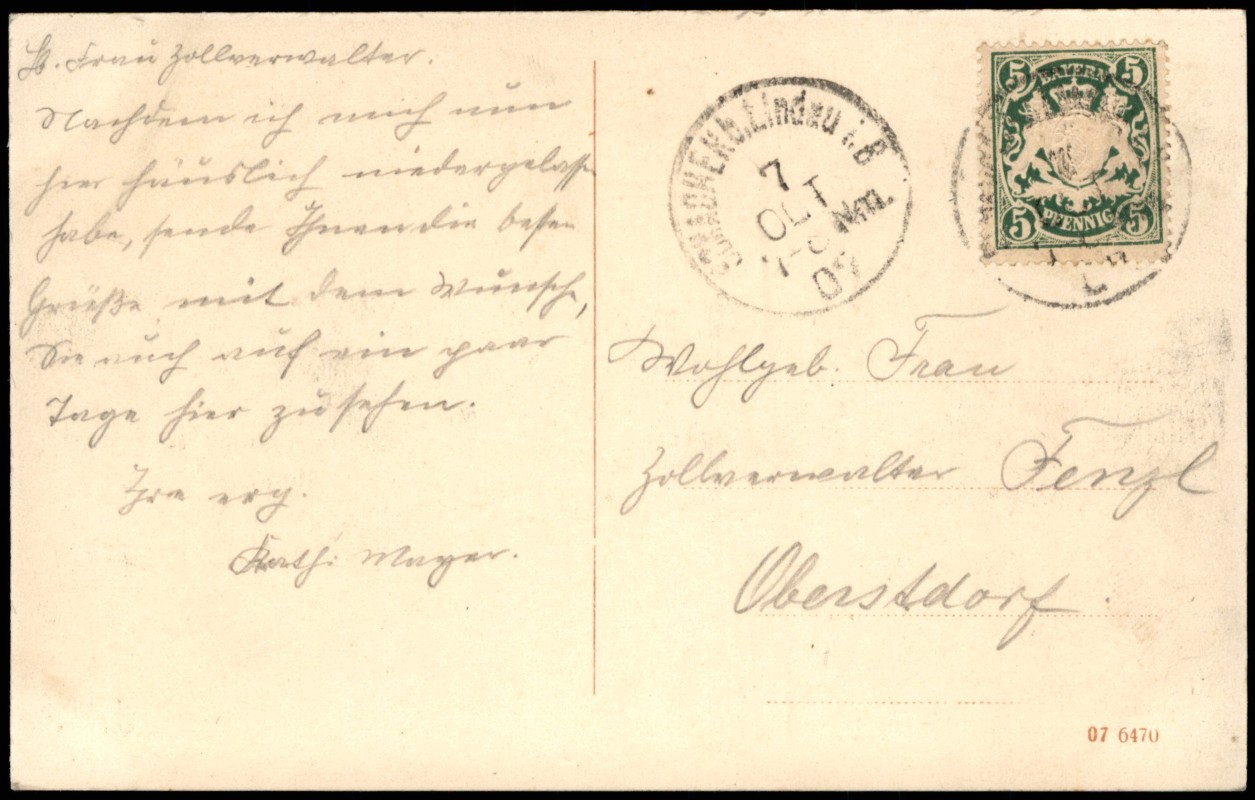 Frau Zollverwalter.
Nachdem ich mich nun
hier häuslich niedergelassen
habe, sende Ihnen die besten
Grüße mit dem Wunsche,
Sie auch auf ein paar
Tage hier zu sehen.
Ihre erg.
Kath: Mayer.
b. Lindau i. B
7
OCT
7-8 Nm.
BAYERN
5 5
5 PFENNIG 5
Wohlgeb. Frau
Zollverwalter Fenzl
Oberstdorf
07 6470